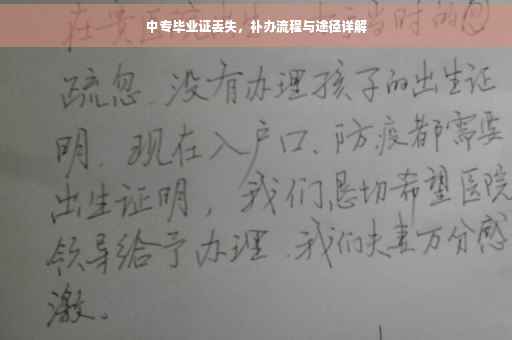 中专毕业证丢失，补办流程与途径详解
在贵医院出生，当时的
疏忽、没有办理孩子的出生证
明、现在入户口、防疫都需要
出生证明，我们恳切希望医院
领导给予办理、我们夫妻万分感
激。